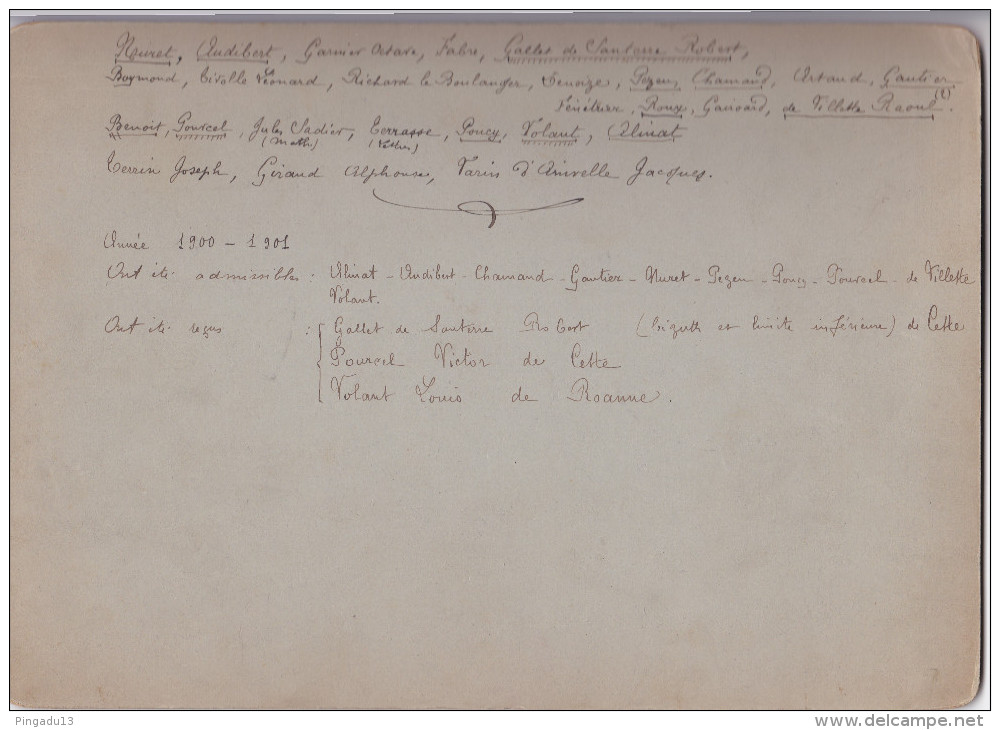 Nuret, Audibert, Garnier Octave, Fabre, Gallet de Santerre Robert,
Boymond, Civelle Léonard, Richard le Boulanger, Senoize, Pezeu, Chamand, Artaud, Gautier
Fénétrier, Roux, Garivard, de Villette Raoul (2).
Benoit, Pourcel, Jules Sadier, Terrasse, Poucy, Volant, Alinat
(Maths) (Lettres)
Terrin Joseph, Giraud Alphonse, Varin d'Ainvelle Jacques.
Année 1900 - 1901
Ont été admissibles : Alinat - Audibert - Chamand - Gautier - Nuret - Pezeu - Poucy - Pourcel - de Villette
Volant.
Ont été reçus : Gallet de Santerre Robert (bizuth et limite inférieure) de Cette
Pourcel Victor de Cette
Volant Louis de Roanne.
Pingadu13
www.delcampe.net